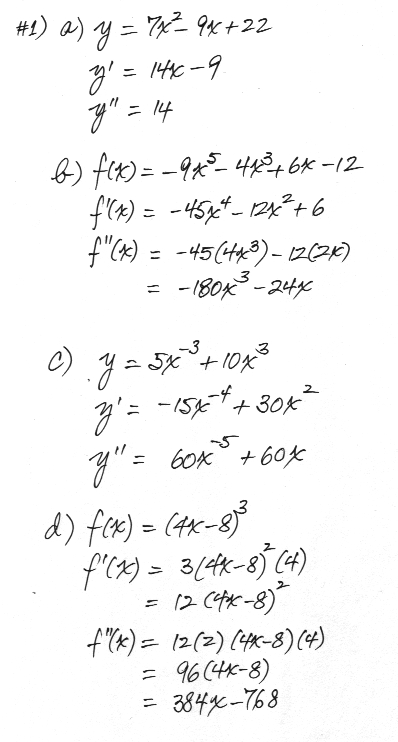 #1) a) y = 7x² - 9x + 22
y' = 14x - 9
y" = 14
b) f(x) = -9x⁵ - 4x³ + 6x - 12
f'(x) = -45x⁴ - 12x² + 6
f"(x) = -45(4x³) - 12(2x)
= -180x³ - 24x
c) y = 5x⁻³ + 10x³
y' = -15x⁻⁴ + 30x²
y" = 60x⁻⁵ + 60x
d) f(x) = (4x-8)³
f'(x) = 3(4x-8)²(4)
= 12(4x-8)²
f"(x) = 12(2)(4x-8)(4)
= 96(4x-8)
= 384x - 768